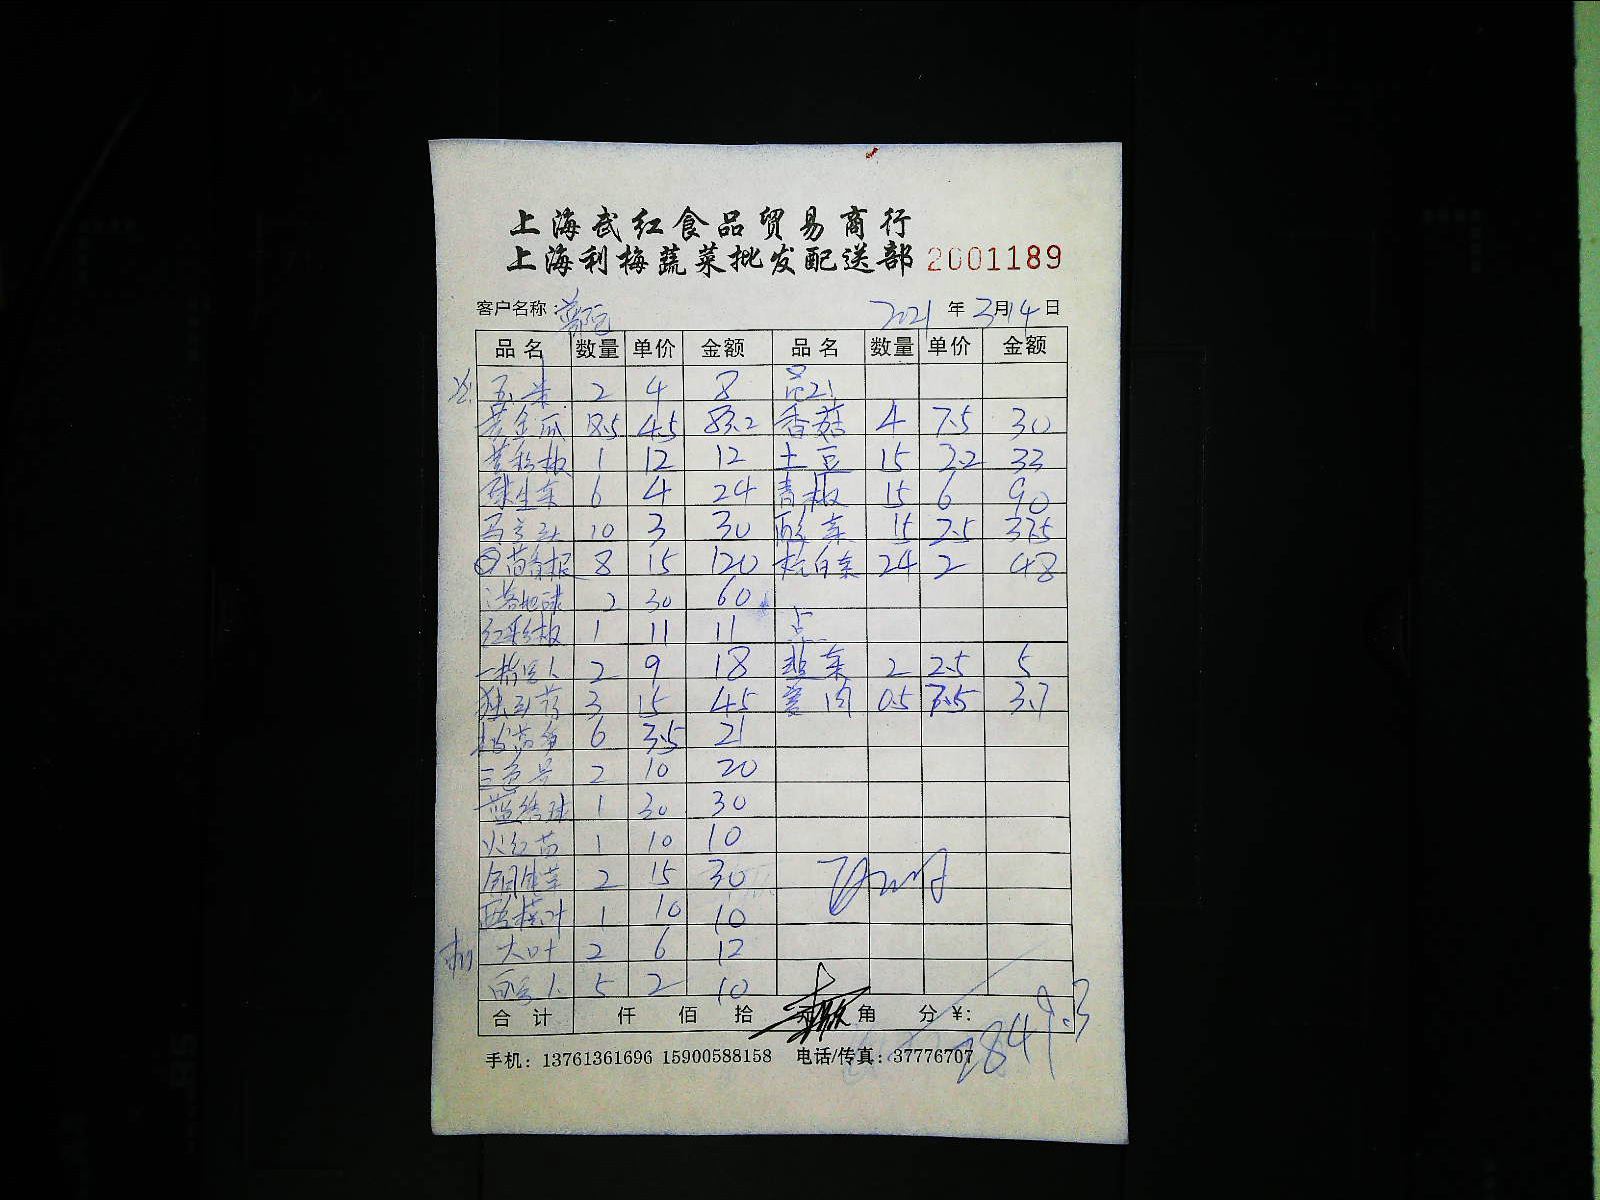 上海武红食品贸易商行
上海利梅蔬菜批发配送部 2001189
客户名称: 2021 年 3月14日
品名 数量 单价 金额 品名 数量 单价 金额
玉米 2 4 8
黄金瓜 18.5 4.5 83.2 香菇 4 7.5 30
黄彩椒 1 12 12 土豆 15 2.2 33
球生菜 6 4 24 青椒 15 6 90
马兰头 10 3 30 15 2.5 37.5
8 15 120 杭白菜 24 2 48
2 30 60
红彩椒 1 11 11 点
2 9 18 韭菜 2 2.5 5
3 15 45 姜肉 0.5 7.5 3.7
6 3.5 21
2 10 20
1 30 30
火红苗 1 10 10
2 15 30
1 10 10
大叶 2 6 12
5 2 10
合计 仟 佰 拾 元 角 分 ¥:
849.3
手机: 13761361696 15900588158 电话/传真: 37776707